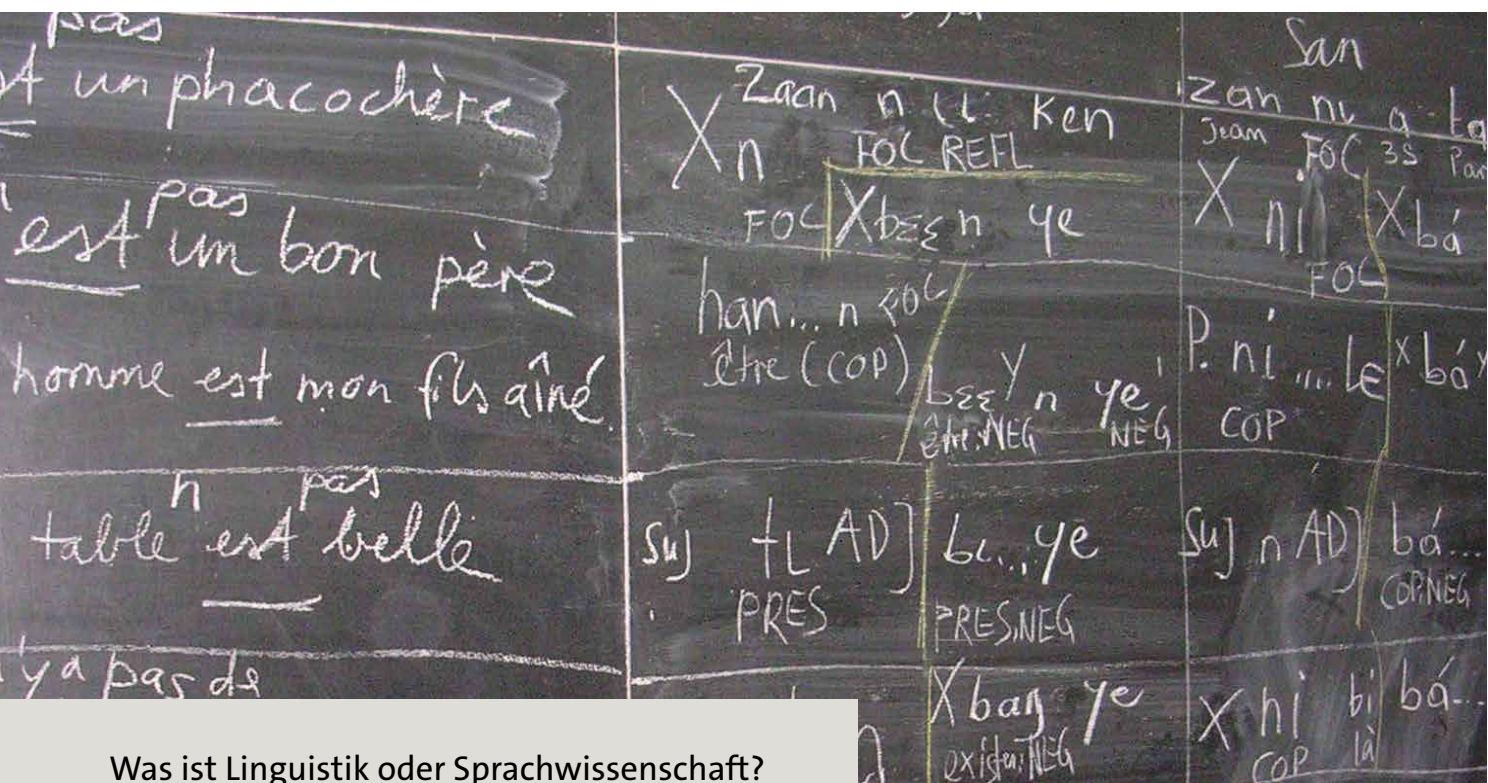 pas
un phacochère
pas
est un bon père
homme est mon fils aîné
n pas
table est belle
y a pas de
Zaan n ken
X n FOC REFL
FOC X bɛɛ n ye
han... n FOC
être (COP)
bɛɛ Y n ye
être.NEG NEG
Suj tɩ AD] bɩ...ye
PRES PRES.NEG
X baŋ ye
exister.NEG
San
Zan nɩ a
Jean FOC 3S
X ni X bá
FOC
P. ni .... lɛ X bá Y
COP
Suj n AD] bá...
COP.NEG
X ni bi bá...
COP là
Was ist Linguistik oder Sprachwissenschaft?